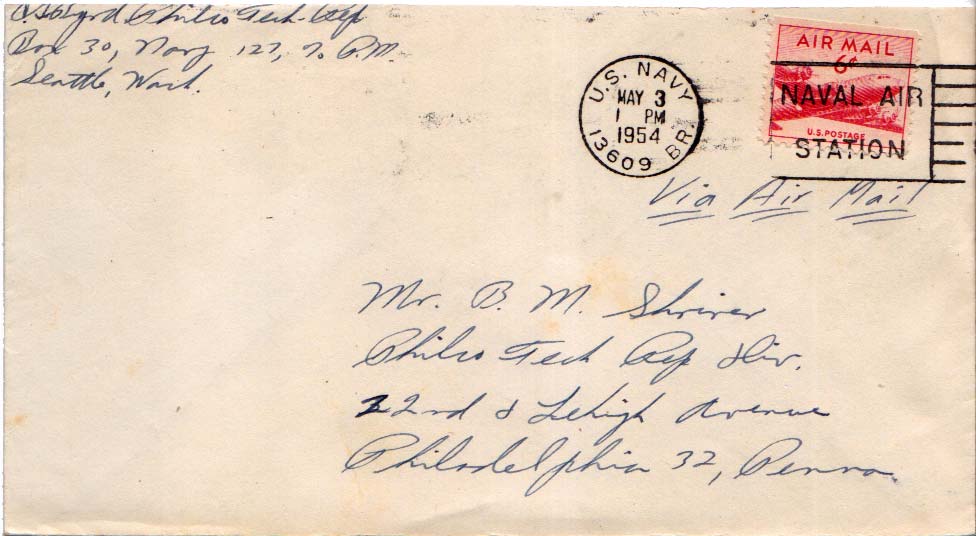 Byrd Philco Tech Rep
Box 30, Navy 127, % P.M.
Seattle, Wash.
U.S. NAVY
MAY 3
1 PM
1954
13609 BR.
AIR MAIL
6¢
U.S. POSTAGE
NAVAL AIR
STATION
Via Air Mail
Mr. B. M. Shriver
Philco Tech Rep Div.
22nd & Lehigh Avenue
Philadelphia 32, Penna